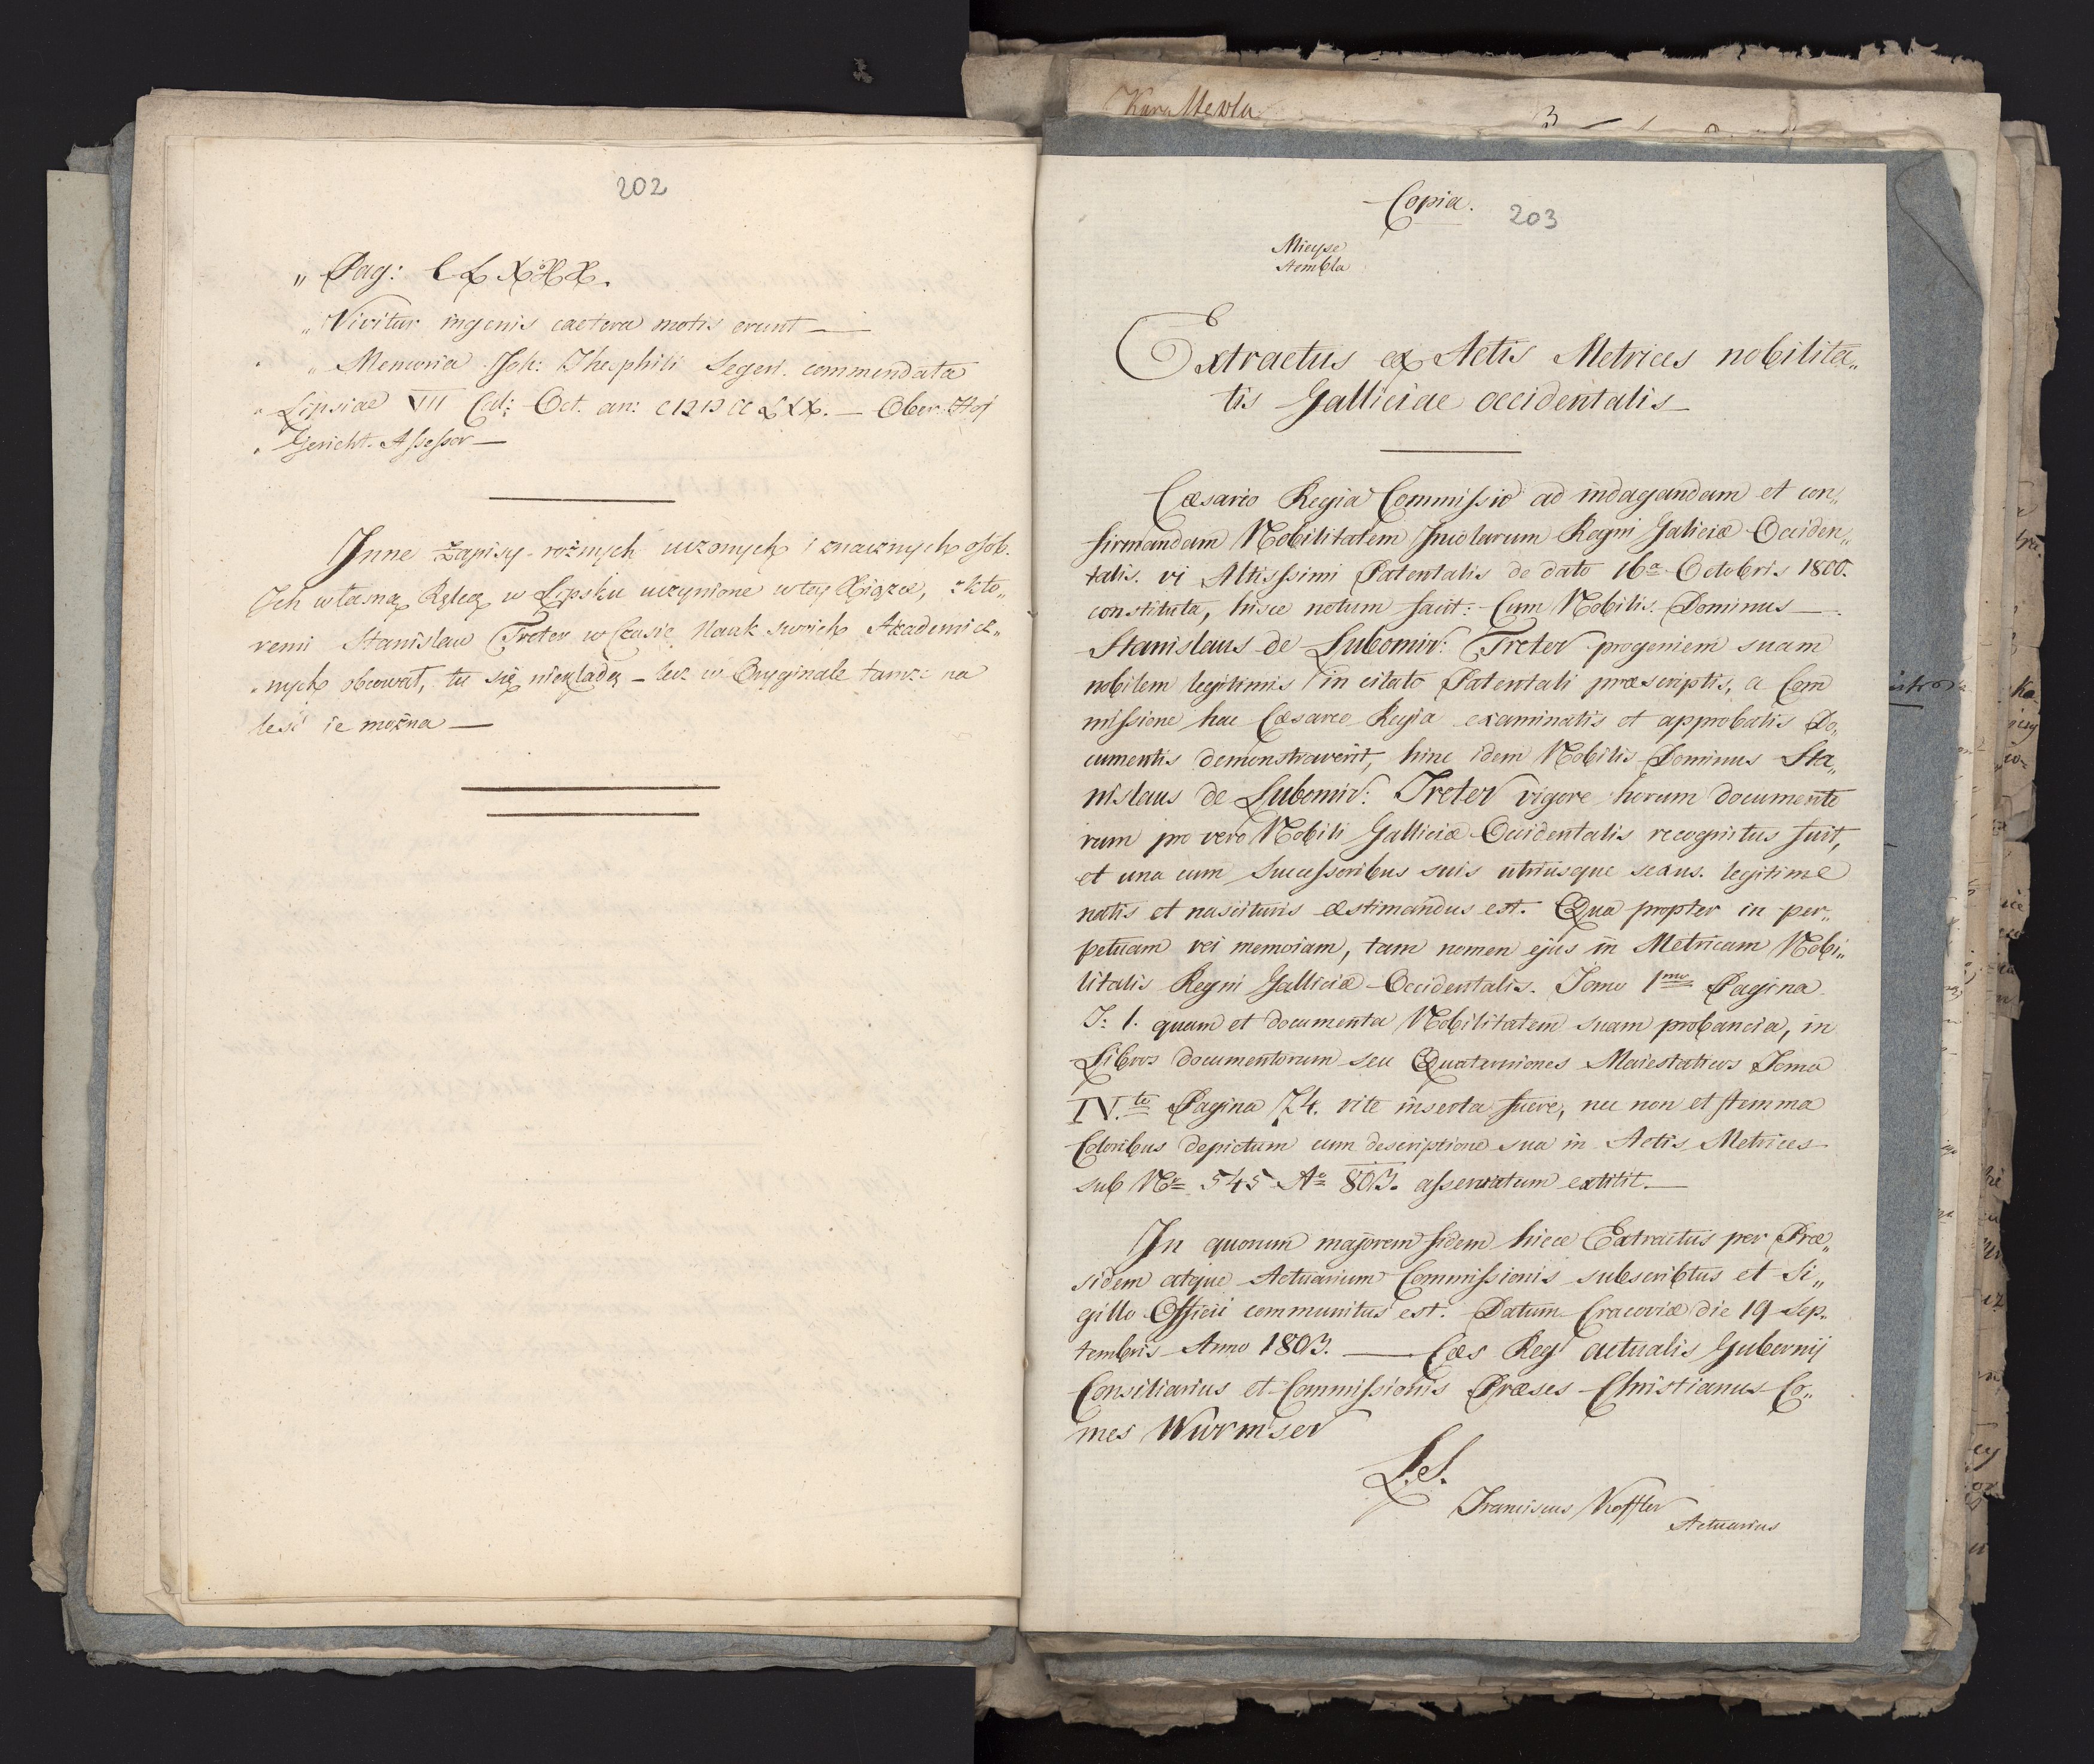 202
„ Pag: CLXXXX.
„ Vivitur ingenis caetera motis erunt —
„ Memoria Joh: Thephili Segeri. commendata
„ Lipsiae VII Cal: Oct. an: LXX. — Ober: Hof
„ Gericht. Assessor —
Inne zapisy rożnych uczonych i znacznych osob.
Ich własną Ręką w Lipsku uczynione w tey Xiązce, z kto„
remi Stanislaw Treter w Czasie Nauk swoich Akademick„
„nych obcował, tu się niekładą — lecz w Oryginale tamże na
lesć ie można —
Kara Mewla
3
Copia.
203
Mieysc
Stempla
Extractus ex Actis Metrices nobilita„
tis Galliciae occidentalis —
Cæsareo Regia Commissio ad indagandam et con„
firmandam Nobilitatem Incolarum Regni Galiciæ Occiden„
talis. vi Altissimi Patentalis de dato 16ª Octobris 1800.
constituta, hisce notum facit: Cum Nobilis Dominus —
Stanislaus de Lubomir: Treter progeniem suam
nobilem legitimis in citato Patentali præscriptis, a Com
missione hac Cæsareo Regia examinatis et approbatis Do„
cumentis demonstraverit, hinc idem Nobilis Dominus Sta„
nislaus de Lubomir: Treter vigore horum documento
rum pro vero Nobili Galliciæ Occidentalis recognitus fuit,
et una cum Successoribus suis utriusque sexus. legitime
natis et nascituris æstimandus est. Qua propter in per„
petuam rei memoiam, tam nomen ejus in Metricam Nobi„
litatis Regni Galliciæ Occidentalis. Tomo 1mo Pagina
T: 1. quam et documenta Nobilitatem suam probancia, in
Libros documentorum seu Quaterniones Maiestaticos Tomo
IV.to Pagina 74. rite inserta fuere, nec non et stemma
Coloribus depictum cum descriptione sua in Actis Metrices
sub No 545 Ao 803. asservatum extitit. —
In quorum majorem fidem hicce Extractus per Præ„
sidem atque Actuarium Commissionis subscribtus et Si„
gillo Officii communitus est. Datum Cracoviæ die 19 Sep„
tembris Anno 1803. — Cæs Reg actualis Gubernij
Consiliarius et Commissionis Præses Christianus Co„
mes Wurmser
L.S.
Franciscus Koffler
Actuarius